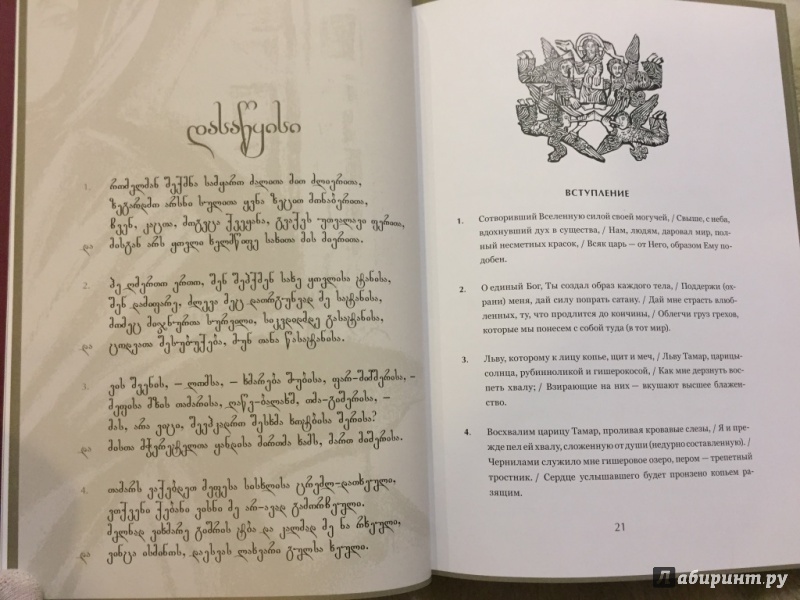 დასაწყისი
1. რომელმან შექმნა სამყარო ძალითა მით ძლიერითა,
ზეგარდმო არსნი სულითა ყვნა ზეცით მონაბერითა,
ჩვენ, კაცთა, მოგვცა ქვეყანა, გვაქვს უთვალავი ფერითა,
და მისგან არს ყოვლი ხელმწიფე სახითა მის მიერითა.
2. ჰე ღმერთო ერთო, შენ შეჰქმენ სახე ყოვლისა ტანისა,
შენ დამიფარე, ძლევა მეც დათრგუნვად მე სატანისა,
მომეც მიჯნურთა სურვილი, სიკვდიდმდე გასატანისა,
და ცოდვათა შესუბუქება, მუნ თანა წასატანისა.
3. ვის შვენის, – ლომსა, – ხმარება შუბისა, ფარ-შიმშერისა, –
მეფისა მზის თამარისა, ღაწვ-ბადახშ, თმა-გიშერისა, –
მას, არა ვიცი, შევჰკადრო შესხმა ხოტბისა შერისა?
და მისთა მჭვრეტელთა ყანდისა მირთმა ხამს, მართ მიშერისა.
4. თამარს ვაქებდეთ მეფესა სისხლისა ცრემლ-დათხეული,
ვთქვენი ქებანი ვისნი მე არ-ავად გამორჩეული.
მელნად ვიხმარე გიშრის ტბა და კალმად მე ნა რხეული,
და ვინცა ისმინოს, დაესვას ლახვარი გულსა ხეული.
ВСТУПЛЕНИЕ
1. Сотворивший Вселенную силой своей могучей, / Свыше, с неба,
вдохнувший дух в существа, / Нам, людям, даровал мир, пол-
ный несметных красок, / Всяк царь — от Него, образом Ему по-
добен.
2. О единый Бог, Ты создал образ каждого тела, / Поддержи (ох-
рани) меня, дай силу попрать сатану. / Дай мне страсть влюб-
ленных, ту, что продлится до кончины, / Облегчи груз грехов,
которые мы понесем с собой туда (в тот мир).
3. Льву, которому к лицу копье, щит и меч, / Льву Тамар, царицы-
солнца, рубинноликой и гишерокосой, / Как мне дерзнуть вос-
петь хвалу; / Взирающие на них — вкушают высшее блажен-
ство.
4. Восхвалим царицу Тамар, проливая кровавые слезы, / Я и пре-
жде пел ей хвалу, сложенную от души (недурно составленную). /
Чернилами служило мне гишеровое озеро, пером — трепетный
тростник. / Сердце услышавшего будет пронзено копьем ра-
зящим.
21
Лабиринт.ру